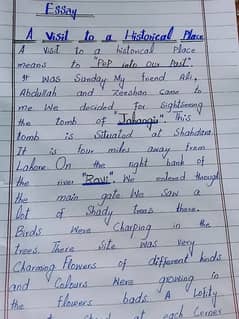 Essay
A Visit to a Historical Place
A visit to a historical Place
means to "PeP into Our Past".
It was Sunday My friend Ali,
Abdullah and Zeeshan came to
me We decided for Sightseeing
the tomb of "Jahangir". This
tomb is Situated at Shahdara.
It is four miles away from
Lahore On the right bank of
the river "Ravi". We entered through
the main gate We Saw a
lot of Shady trees there.
Birds Were Charping in the
trees. There Site was very
Charming Flowers of different kinds
and Colours Were growing in
the flowers beds. A Lofity
at each Corner